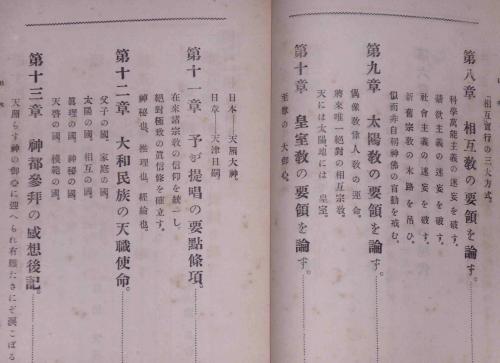 「相互實行の三大方式。」
第八章　相互教の要領を論ず。
科學萬能主義の迷妄を破す。
基獄主義の迷妄を破す。
社會主義の迷妄を破す。
新舊宗教の末路を弔ひ。
似而非自稱神佛の盲動を戒む。
第九章　太陽教の要領を論ず。
偶像教偉人教の運命。
將來唯一絕對の相互宗教。
天には太陽地には　皇室。
第十章　皇室教の要領を論ず。
至尊の大御心。
日本――天照大神。
日章――天津日嗣
第十一章　予が提唱の要點條項。
在來諸宗教の信仰を統一し、
絕對極致の眞信條を確立す。
神秘也、推理也、經綸也。
第十二章　大和民族の天職使命。
父子の國、家庭の國。
太陽の國、相互の國。
眞理の國、神秘の國。
天啓の國、模範の國。
第十三章　神都參拜の感想後記。
天照らす神の御心に迎へられ有難たさにぞ淚こぼる